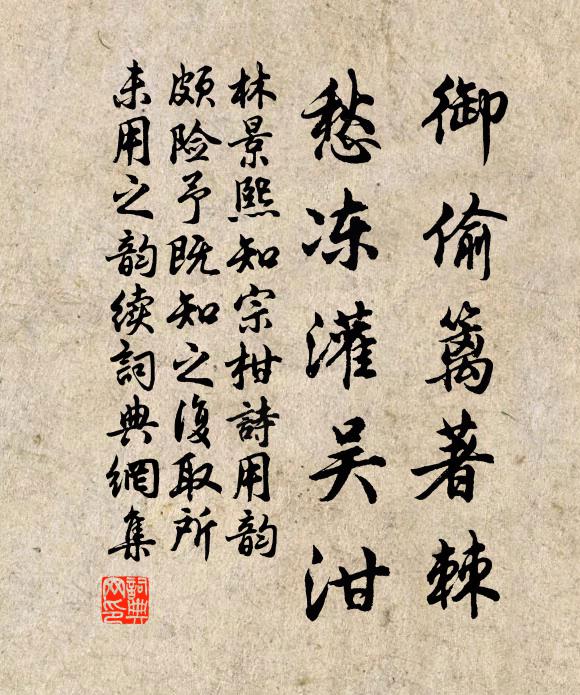 御偷篱著棘
愁冻灌吴泔
林景熙知宗柑詩用韵
颇险予既知之復取所
未用之韵续詞典網集
詞典网印